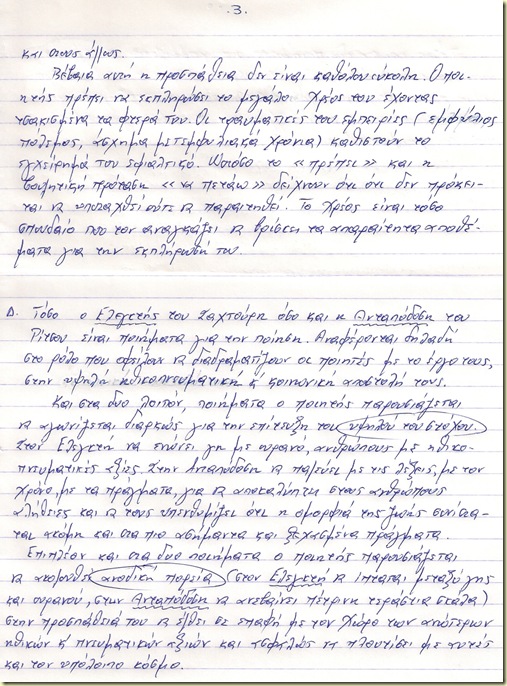 .3.
και στους άλλους.
Βέβαια αυτή η προσπάθεια δεν είναι καθόλου εύκολη. Ο ποι-
ητής πρέπει να εκπληρώσει το μεγάλο χρέος του έχοντας
τσακισμένα τα φτερά του. Οι τραυματικές του εμπειρίες (εμφύλιος
πόλεμος, άσχημα μετεμφυλιακά χρόνια) καθιστούν το
εγχείρημά του εφιαλτικό. Ωστόσο το «πρέπει» και η
βουλητική πρόταση «να πετάω» δείχνουν ότι ότι δεν πρόκει-
ται να υποταχθεί ούτε να παραιτηθεί. Το χρέος είναι τόσο
σπουδαίο που τον αναγκάζει να βρίσκει τα απαραίτητα αποθέ-
ματα για την εκπλήρωσή του.
Δ. Τόσο ο Ελεγκτής του Σαχτούρη όσο και η Ανταπόδοση του
Ρίτσου είναι ποιήματα για την ποίηση. Αναφέρονται δηλαδή
στο ρόλο που οφείλουν να διαδραματίζουν οι ποιητές με το έργο τους,
στην υψηλή ηθικοπνευματική & κοινωνική αποστολή τους.
Και στα δυο λοιπόν, ποιήματα ο ποιητής παρουσιάζεται
να αγωνίζεται διαρκώς για την επίτευξη του υψηλού του στόχου.
Στον Ελεγκτή να ενώνει γη με ουρανό, ανθρώπους με ηθικο-
πνευματικές αξίες. Στην Ανταπόδοση να παλεύει με τις λέξεις, με τον
χρόνο, με τα πράγματα για να αποκαλύπτει στους ανθρώπους
αλήθειες και να τους υπενθυμίζει ότι η ομορφιά της ζωής συνίστα-
ται ακόμη και στα πιο ασήμαντα και ξεχασμένα πράγματα.
Επιπλέον και στα δυο ποιήματα ο ποιητής παρουσιάζεται
να ακολουθεί ανοδική πορεία (στον Ελεγκτή να ίπταται μεταξύ γης
και ουρανού, στην Ανταπόδοση να ανεβαίνει πέτρινη τεράστια σκάλα)
στην προσπάθειά του να έλθει σε επαφή με τον χώρο των ανώτερων
ηθικών & πνευματικών αξιών και ασφαλώς να πλουτίσει με αυτές
και τον υπόλοιπο κόσμο.